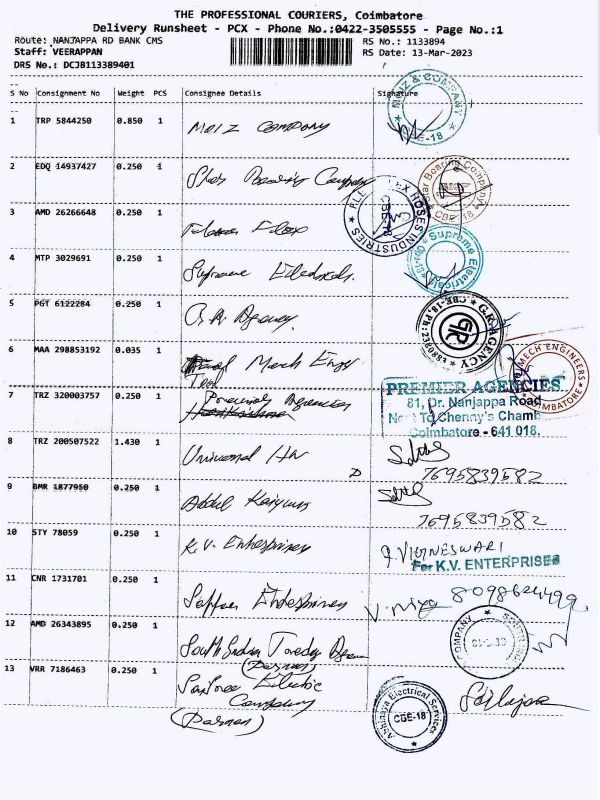 THE PROFESSIONAL COURIERS, Coimbatore
Delivery Runsheet - PCX - Phone No.:0422-3505555 - Page No.:1
Route: NANJAPPA RD BANK CMS RS No.: 1133894
Staff: VEERAPPAN RS Date: 13-Mar-2023
DRS No.: DCJB113389401
S No Consignment No Weight PCS Consignee Details Signature
1 TRP 5844250 0.850 1 Moiz Company
MOIZ & COMPANY
CBE-18
2 EDQ 14937427 0.250 1 Star Boaring Company
Star Boaring Company
CBE-18
3 AMD 26266648 0.250 1
HOSES INDUSTRIES
CBE-18
4 MTP 3029691 0.250 1 Supreme Electricals.
Supreme Electrical
CBE-18
5 PGT 6122284 0.250 1 G.R. Agency.
G.R. AGENCY
CBE-18, Ph:
GR
6 MAA 298853192 0.035 1 Mech Engr
MECH ENGINEERS
COIMBATORE
7 TRZ 320003757 0.250 1 Premier Agencies
PREMIER AGENCIES
81, Dr. Nanjappa Road
Next To Chenny's Chamb
Coimbatore - 641 018.
8 TRZ 200507522 1.430 1 Universal Hw
7695839582
9 BMR 1877950 0.250 1 Abdul Kaiyum
7695839582
10 STY 78059 0.250 1 K.V. Enterprises
VIGNESWARI
For K.V. ENTERPRISES
11 CNR 1731701 0.250 1 Enterprises
V. 8098624499
12 AMD 26343895 0.250 1 South Indian
COMPANY
13 VRR 7186463 0.250 1 Electric
Company
Abhinaya Electrical Services
CBE-18